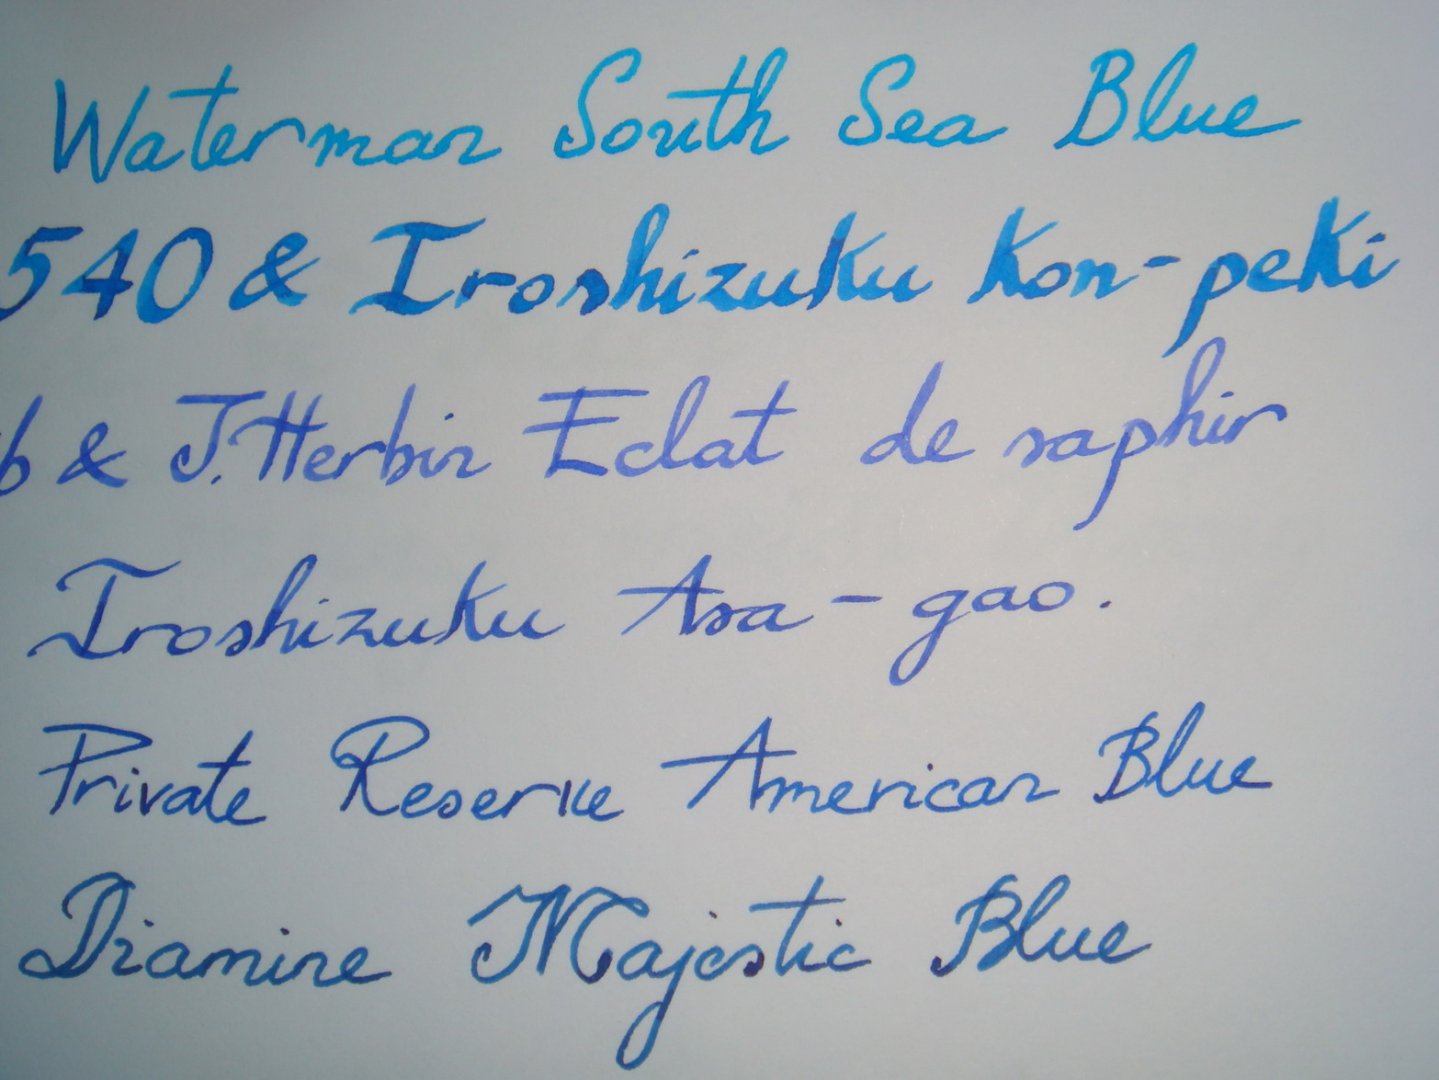 Waterman South Sea Blue
540 & Iroshizuku Kon-peki
6 & J. Herbin Eclat de saphir
Iroshizuku Asa-gao.
Private Reserve American Blue
Diamine Majestic Blue